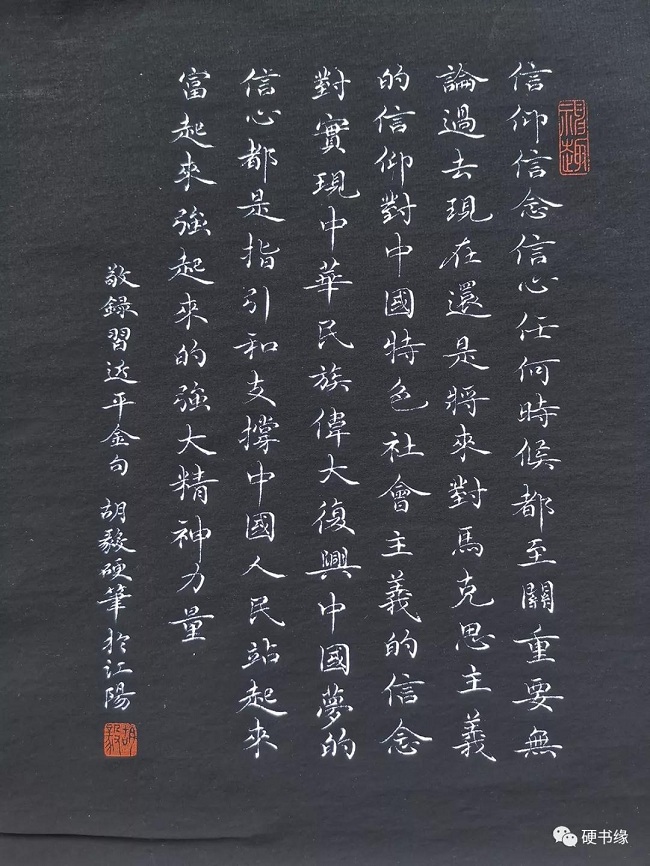 信仰信念信心任何時候都至關重要無
論過去現在還是將來對馬克思主義
的信仰對中國特色社會主義的信念
對實現中華民族偉大復興中國夢的
信心都是指引和支撐中國人民站起來
富起來強起來的強大精神力量
敬録習近平金句 胡毅硬筆於江陽
胡毅
硬书缘